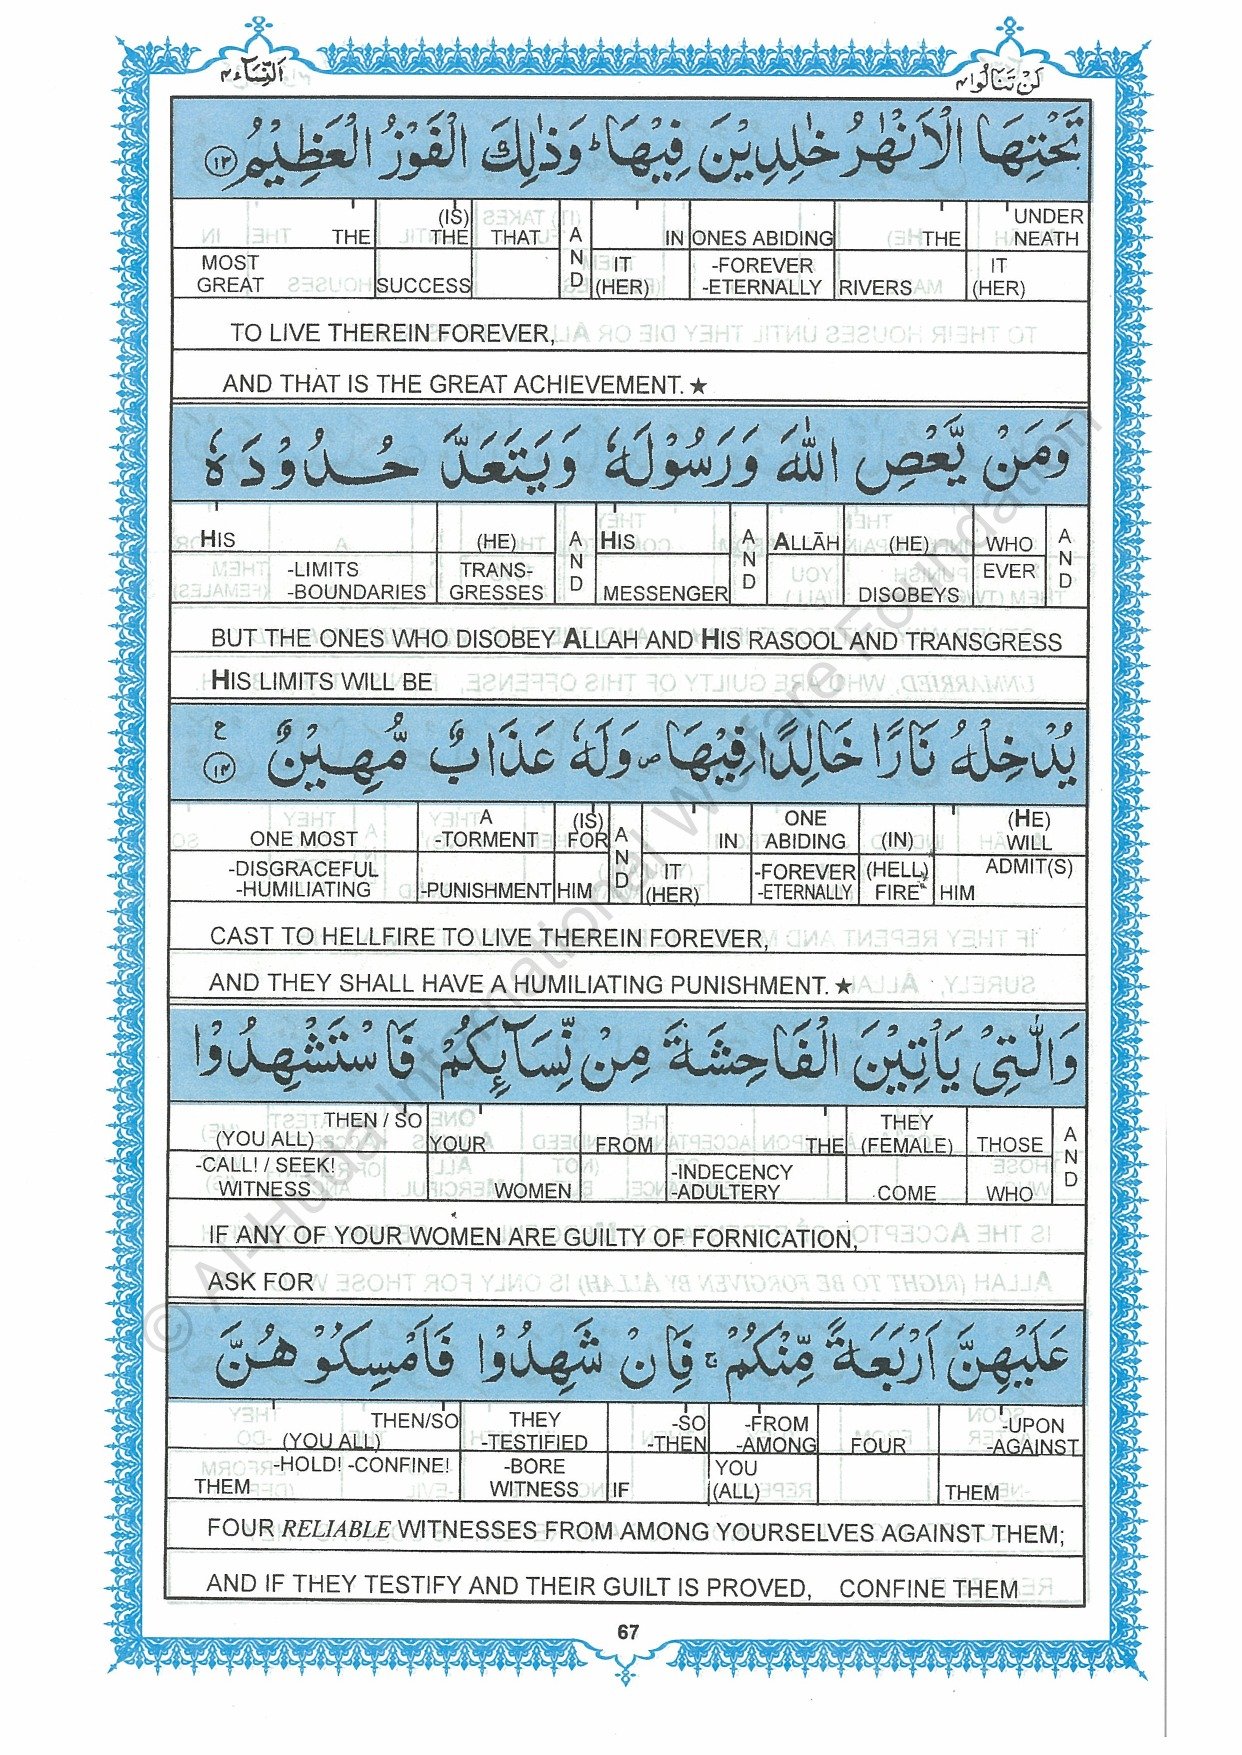 اَلنِّسَآء ٤
لَنْ تَنَالُوا ٤
تَحْتِهَا الْاَنْهٰرُ خٰلِدِيْنَ فِيْهَا ؕ وَذٰلِكَ الْفَوْزُ الْعَظِيْمُ ١٣
THE (IS) THE THAT AND IN ONES ABIDING THE UNDER NEATH
MOST GREAT SUCCESS IT (HER) -FOREVER -ETERNALLY RIVERS IT (HER)
TO LIVE THEREIN FOREVER,
AND THAT IS THE GREAT ACHIEVEMENT. ★
وَمَنْ يَّعْصِ اللّٰهَ وَرَسُوْلَهٗ وَيَتَعَدَّ حُدُوْدَهٗ
HIS (HE) AND HIS AND ALLĀH (HE) WHO AND
-LIMITS -BOUNDARIES TRANS- GRESSES MESSENGER DISOBEYS EVER
BUT THE ONES WHO DISOBEY ALLAH AND HIS RASOOL AND TRANSGRESS
HIS LIMITS WILL BE
يُدْخِلْهُ نَارًا خَالِدًا فِيْهَا ۪ وَلَهٗ عَذَابٌ مُّهِيْنٌ ١٤ ع
ONE MOST A -TORMENT (IS) FOR AND IN ONE ABIDING (IN) (HE) WILL
-DISGRACEFUL -HUMILIATING -PUNISHMENT HIM IT (HER) -FOREVER -ETERNALLY (HELL) FIRE HIM ADMIT(S)
CAST TO HELLFIRE TO LIVE THEREIN FOREVER,
AND THEY SHALL HAVE A HUMILIATING PUNISHMENT. ★
وَالّٰتِیْ يَاْتِيْنَ الْفَاحِشَةَ مِنْ نِّسَآىِٕكُمْ فَاسْتَشْهِدُوْا
THEN / SO (YOU ALL) YOUR FROM THE THEY (FEMALE) THOSE AND
-CALL! / SEEK! WITNESS WOMEN -INDECENCY -ADULTERY COME WHO
IF ANY OF YOUR WOMEN ARE GUILTY OF FORNICATION,
ASK FOR
عَلَيْهِنَّ اَرْبَعَةً مِّنْكُمْ ۚ فَاِنْ شَهِدُوْا فَاَمْسِكُوْهُنَّ
THEN/SO (YOU ALL) THEY -TESTIFIED -SO -THEN -FROM -AMONG FOUR -UPON -AGAINST
THEM -HOLD! -CONFINE! -BORE WITNESS IF YOU (ALL) THEM
FOUR RELIABLE WITNESSES FROM AMONG YOURSELVES AGAINST THEM;
AND IF THEY TESTIFY AND THEIR GUILT IS PROVED, CONFINE THEM
67
© Al-Huda International Welfare Foundation